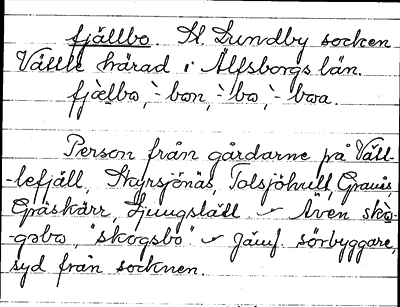 fjällbo. St. Lundby socken
Vättle härad i Älfsborgs län.
fjælbω, ̀- bωn, ̀- bω, ̀- bωa.
Person från gårdarne på Vätt-
-lefjäll, Skyrsjönäs, Tolsjöhult,
Gräskärr, Ljungslätt - Även skò-
-gəbω, "skogsbo" - Jämf. sörbyggare,
syd från socknen.